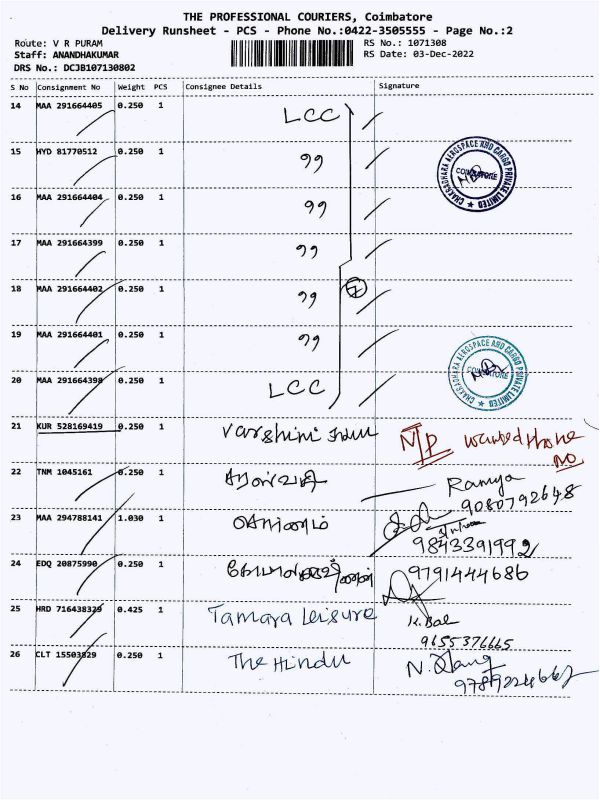 THE PROFESSIONAL COURIERS, Coimbatore
Delivery Runsheet - PCS - Phone No.:0422-3505555 - Page No.:2
Route: V R PURAM
RS No.: 1071308
Staff: ANANDHAKUMAR
RS Date: 03-Dec-2022
DRS No.: DCJB107130802
S No Consignment No Weight PCS Consignee Details Signature
14 MAA 291664405 0.250 1 LCC
15 HYD 81770512 0.250 1 99
16 MAA 291664404 0.250 1 99
17 MAA 291664399 0.250 1 99
18 MAA 291664402 0.250 1 99
7
19 MAA 291664401 0.250 1 99
20 MAA 291664398 0.250 1 LCC
CHAKRADHARA AEROSPACE AND CARGO PRIVATE LIMITED
COIMBATORE
CHAKRADHARA AEROSPACE AND CARGO PRIVATE LIMITED
COIMBATORE
21 KUR 528169419 0.250 1 Varshini N/P wanted Phone
NO
22 TNM 1045161 0.250 1 Ramya
9080792648
23 MAA 294788141 1.030 1
9843391992
24 EDQ 20875990 0.250 1 9791444686
25 HRD 716438329 0.425 1 Tamara Leisure K. Bal
9655376665
26 CLT 15503829 0.250 1 The Hindu